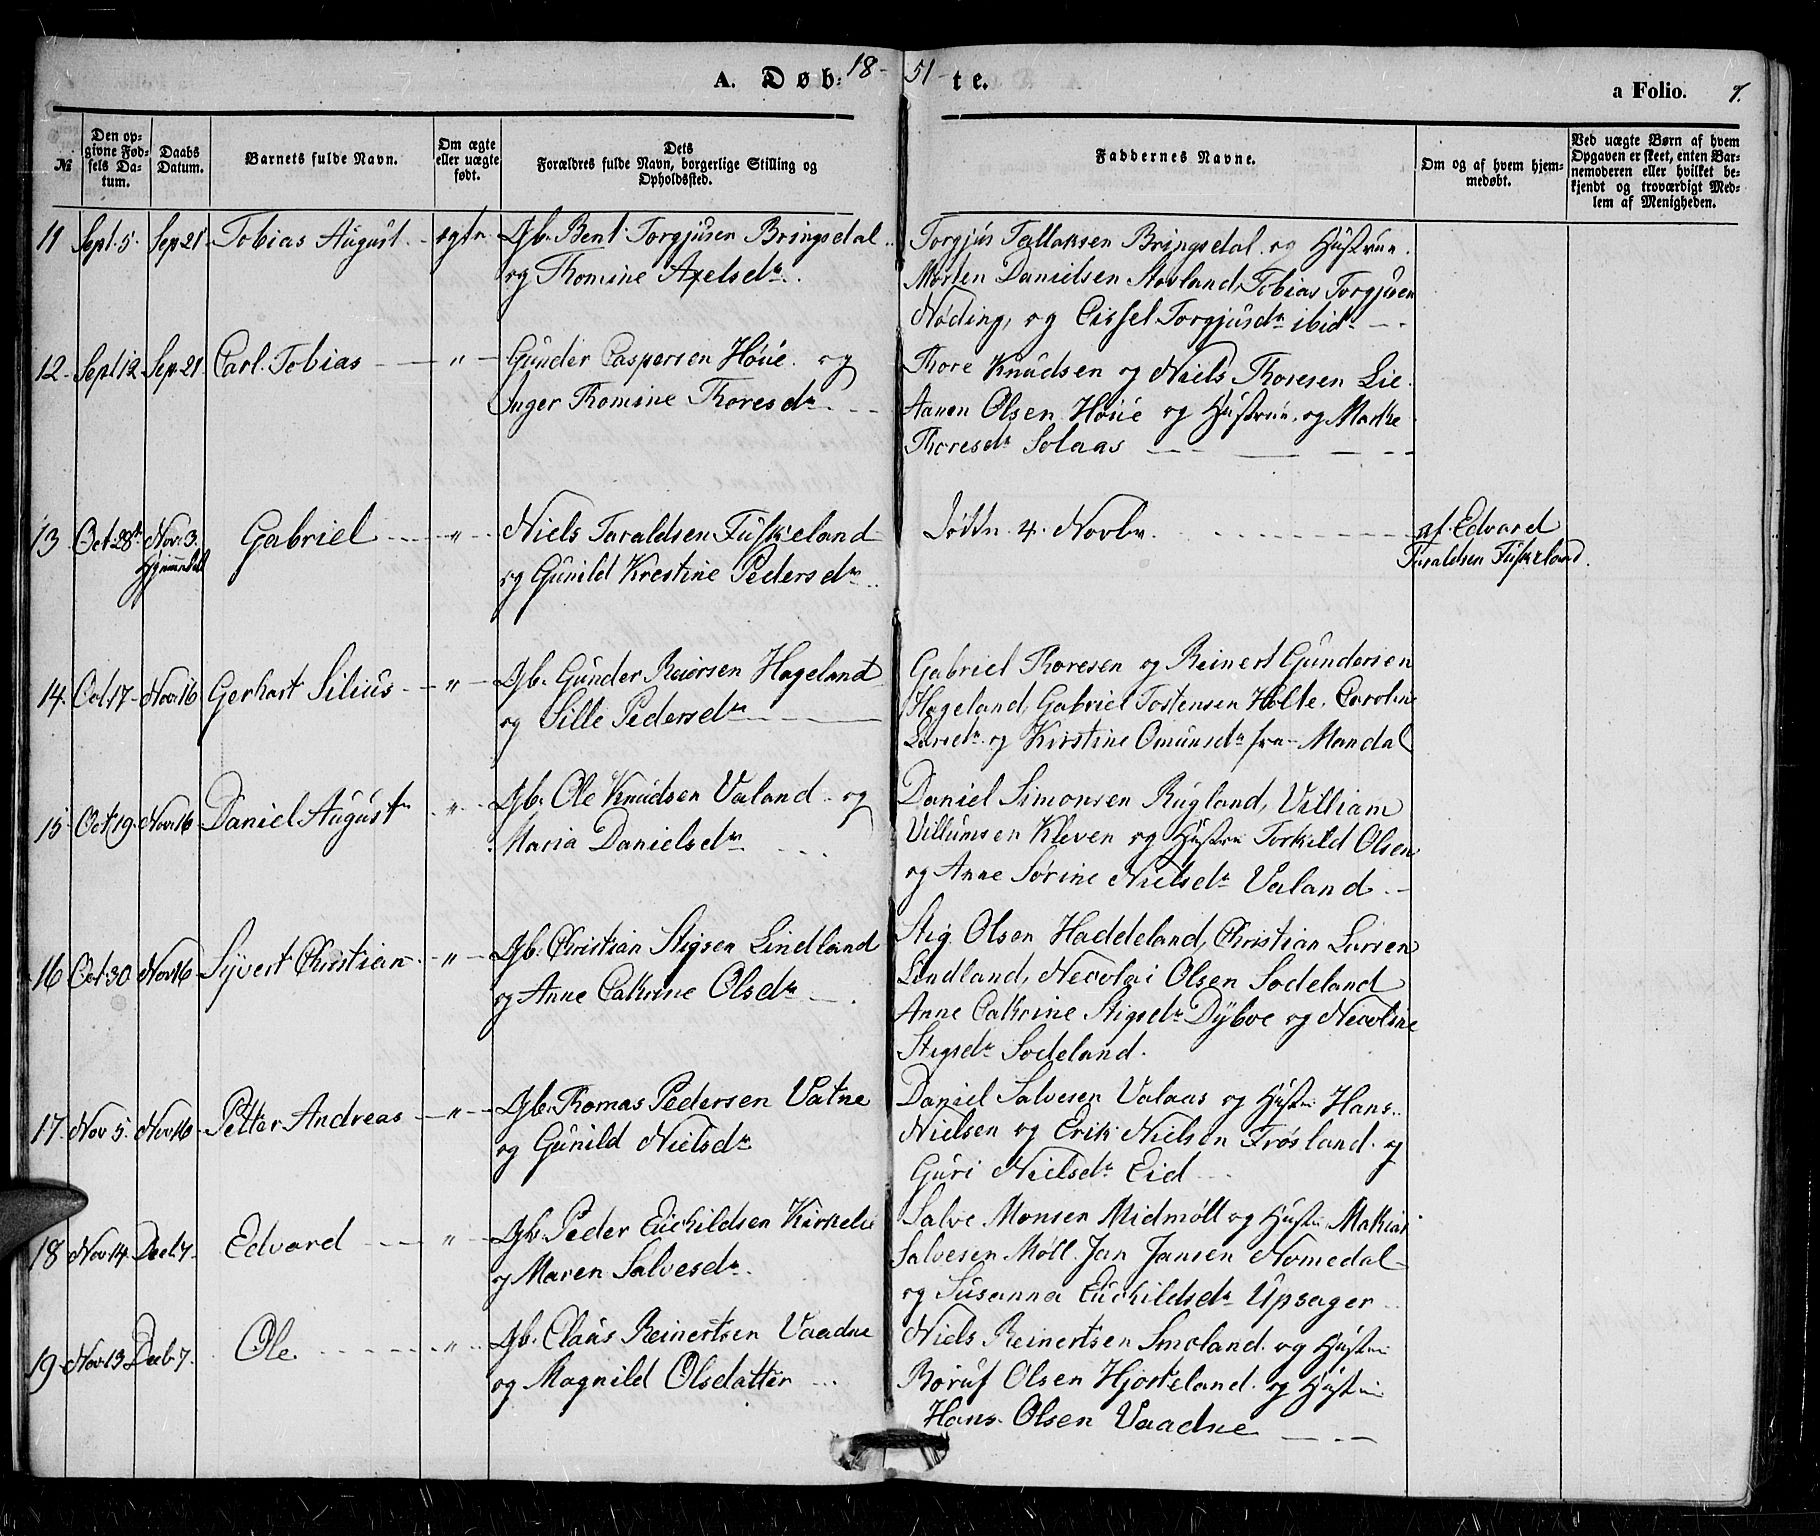 A. Døb- 18-51- te.
a Folio. 7.
№
Den opgivne Fødsels Datum.
Daabs Datum.
Barnets fulde Navn.
Om ægte eller uægte født.
Dets Forældres fulde Navn, borgerlige Stilling og Opholdssted.
Faddernes Navne.
Om og af hvem hjemmedøbt.
Ved uægte Børn af hvem Opgaven er skeet, enten Barnemoderen eller hvilket bekjendt og troværdigt Medlem af Menigheden.
11 Sept. 5. Sep 21. Tobias August. egte. Gb. Bent Torgjusen Bringsdal
og Thomine Axelsdr.
Torgjus Tallaksen Bringsdal og Hustrue.
Morten Danielsen Stusland, Tobias Torgjusen
Nøding, og Cissel Torgjusdr ibid
12. Sept 12 Sep. 21. Carl Tobias " Gunder Caspersen Høie og
Inger Thomine Thoresdr
Thore Knudsen og Niels Thoresen Lie
Aanon Olsen Høie og Hustrue, og Marthe
Thoresdr Solaas
13. Oct 28de Nov. 3. Hjemmedøbt Gabriel " Niels Taraldsen Fuskeland
og Gunild Krestine Pedersdr
Død 4. Novbr.
af Edvard
Taraldsen Fuskeland.
14. Oct. 17 Nov. 16 Gerhart Silius " Gb. Gunder Reiersen Hageland
og Sille Pedersdr
Gabriel Thoresen og Reinert Gundersen
Hageland, Gabriel Tostensen Holte, Caroline
Larsdr og Kirstine Omunsdr fra Mandal
15. Oct 19. Nov. 16 Daniel August " Gb. Ole Knudsen Valand og
Maria Danielsdr
Daniel Simonsen Rugland, Villiam
Villumsen Kleven og Hustru Torkild Olsen
og Anne Sørine Nielsdr Valand
16 Oct 30 Nov 16 Syvert Christian " Gb. Christian Stigsen Lindland
og Anne Cathrine Olsdr
Stig Olsen Haddeland, Christian Larsen
Lindland, Nicolai Olsen Sodeland
Anne Cathrine Stigsdr Dybvoe og Nicoline
Stigsdr Sodeland.
17. Nov 5. Nov 16 Petter Andreas " Gb. Thomas Pedersen Vatne
og Gunild Nielsdr
Daniel Salvesen Valaas og Hustru Hans
Nielsen og Erik Nielsen Frøsland og
Guri Nielsdr Eid
18 Nov 14. Decb 7. Edvard " Gb. Peder Euckildsen Kirkelie
og Maren Salvesdr.
Salve Monsen Midmøll og Hustru Mathias
Salvesen Møll. Jan Jansen Nomedal
og Susanna Euckildsdr Upsager
19 Nov 13 Decb. 7. Ole " Gb. Claus Reinertsen Vaadne
og Magnild Olsdatter
Niels Reinertsen Smeland og Hustru
Børuf Olsen Hjorteland og Hustru
Hans Olsen Vaadne